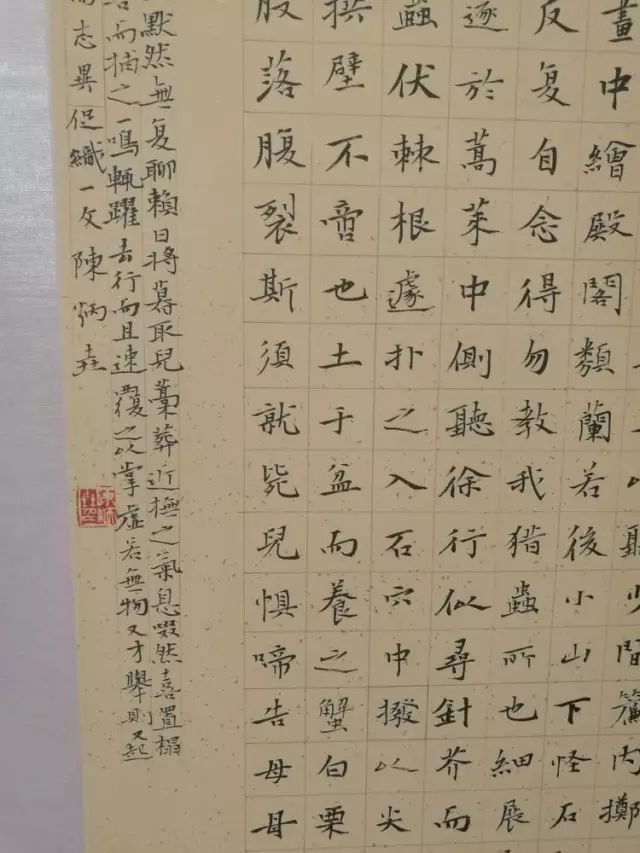 間簾內擲
畫中繪殿閣類蘭若後小山下怪石
反复自念得勿教我猎蟲所也細展
逐於蒿萊中側聽徐行似尋針芥而
蟲伏棘根遽扑之入石穴中撥以尖
拱壁不啻也土于盆而養之蟹白栗
股落腹裂斯須就斃兒惧啼告母母
默然無复聊賴日將暮取兒藁葬近撫之氣息惙然喜置榻
而捕之一鳴輒躍去行而且速覆之以掌虛若無物又才舉則又起
志異促織一文陳炳垚